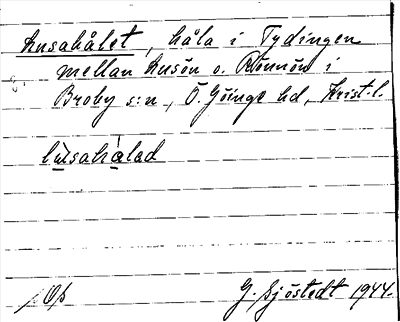 Lusahålet, håla i Tydingen
mellan Lusön o. Rönnön i
Broby s:n, Ö. Göinge hd, Krist. l.
lusahålad
G. Sjöstedt 1944.